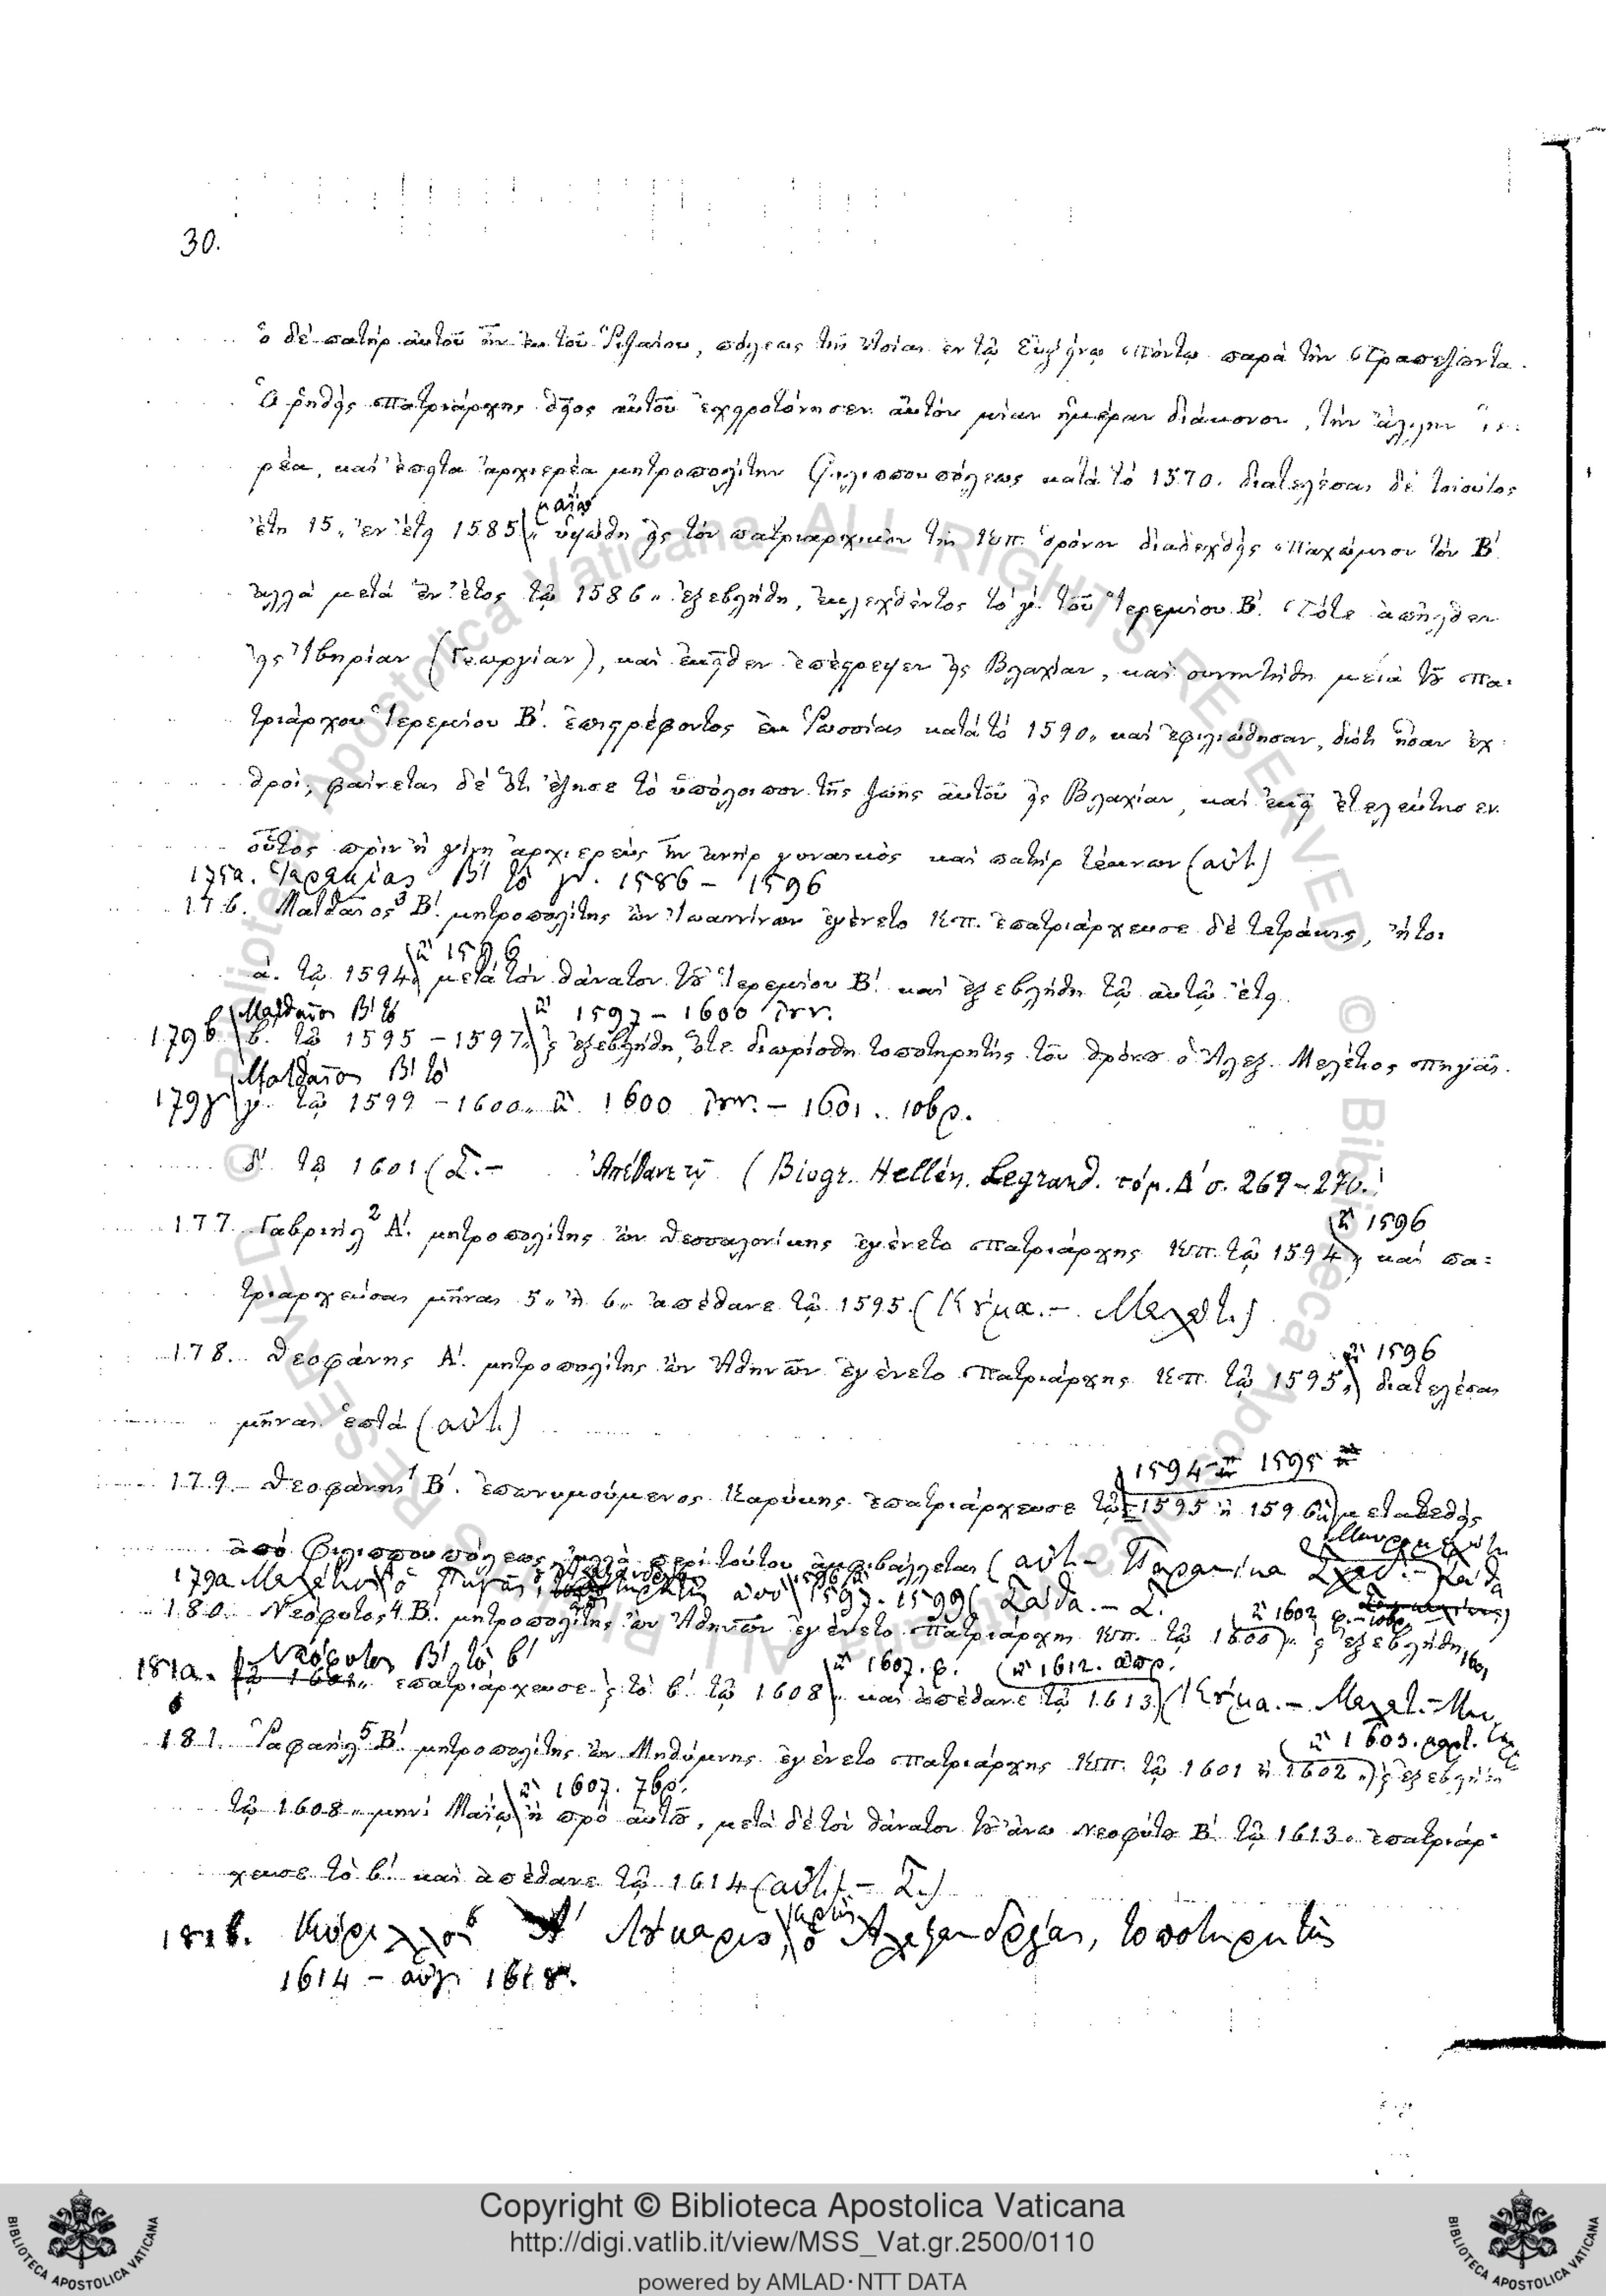 30.
ὁ δὲ πατὴρ αὐτοῦ ἦν ἐκ τοῦ Ῥιζαίου, πόλεως τῆς Ἀσίας ἐν τῷ Εὐξείνῳ Πόντῳ παρὰ τὴν Τραπεζοῦντα.
Ὁ ῥηθεὶς Πατριάρχης θεῖος αὐτοῦ ἐχειροτόνησεν αὐτὸν μίαν ἡμέραν διάκονον, τὴν ἄλλην ἱε=
ρέα, καὶ ἔπειτα ἀρχιερέα μητροπολίτην Φιλιππουπόλεως κατὰ τὸ 1570. διατελέσας δὲ τοιοῦτος
μαΐῳ
ἔτη 15, ἐν ἔτει 1585 ὑψώθη εἰς τὸν πατριαρχικὸν τῆς Κπ. θρόνον διαδεχθεὶς Παχώμιον τὸν Β΄
ἀλλὰ μετὰ ἓν ἔτος τῷ 1586 ἐξεβλήθη, ἐκλεχθέντος τὸ γ΄. τοῦ Ἱερεμίου Β΄. Τότε ἀπῆλθεν
εἰς Ἰβηρίαν (Γεωργίαν), καὶ ἐκεῖθεν ἐπέστρεψεν εἰς Βλαχίαν, καὶ συνητήθη μετὰ τοῦ Πα=
τριάρχου Ἱερεμίου Β΄. ἐπιστρέφοντος ἐκ Ῥωσσίας κατὰ τὸ 1590, καὶ ἐφιλιώθησαν, διότι ἦσαν ἐχ=
θροί, φαίνεται δὲ ὅτι ἔζησε τὸ ὑπόλοιπον τῆς ζωῆς αὐτοῦ εἰς Βλαχίαν, καὶ ἐκεῖ ἐτελεύτησεν
οὗτος πρὶν ἢ γίνῃ ἀρχιερεὺς ἦν ἀνὴρ γυναικὸς καὶ πατὴρ τέκνων (αὐτ.)
175a. Ἱερεμίας Β΄ τὸ γ΄. 1586 – 1596
176. Ματθαῖος³ Β΄. μητροπολίτης ὢν Ἰωαννίνων ἐγένετο Κπ. ἐπατριάρχευσε δὲ τετράκις, ἤτοι
ἢ 1596
α΄. τῷ 1594 μετὰ τὸν θάνατον τοῦ Ἱερεμίου Β΄. καὶ ἐξεβλήθη τῷ αὐτῷ ἔτει
Ματθαῖος Β΄ τὸ ἢ 1597 – 1600 Ἰαν.
179β β΄. τῷ 1595 – 1597 ἐξεβλήθη, ὅτε διωρίσθη τοποτηρητὴς τοῦ θρόνου ὁ Ἀλεξ. Μελέτιος Πηγᾶς.
Ματθαῖος Β΄ τὸ
179γ γ΄. τῷ 1599 – 1600 ἢ 1600 Ἰαν. – 1601. 10βρ.
δ΄ τῷ 1601 (Σ. – Ἀπέθανε (Biogr. Hellén. Legrand. τόμ. Δ΄ σ. 269–270.)
ἢ 1596
177. Γαβριὴλ² Α΄. μητροπολίτης ὢν Θεσσαλονίκης ἐγένετο Πατριάρχης Κπ. τῷ 1594 καὶ πα=
τριαρχεύσας μῆνας 5 ἢ 6 ἀπέθανε τῷ 1595 (Κύμα. – Μελετ.)
ἢ 1596
178. Θεοφάνης Α΄. μητροπολίτης ὢν Ἀθηνῶν ἐγένετο Πατριάρχης Κπ. τῷ 1595 διατελέσας
μῆνας ἑπτά (αὐτ.)
1594 – 1595
179. Θεοφάνης¹ Β΄. ἐπονυμούμενος Καρύκης ἐπατριάρχευσε τῷ 1595 ἢ 1596 μεταβεθεὶς
ἀπὸ Φιλιππουπόλεως, ἀλλὰ περὶ τούτου ἀμφιβάλλεται (αὐτ.
179a Μελέτιος ὁ Πηγᾶς ἀπὸ 1597 – 1599 (Σάθα. – Σ.
ἢ 1602
180. Νεόφυτος⁴ Β΄. μητροπολίτης ὢν Ἀθηνῶν ἐγένετο Πατριάρχης Κπ. τῷ 1600 ἐξεβλήθη 1601
Νεόφυτος Β΄ τὸ β΄ ἢ 1607. ἢ 1612.
181a. ἐπατριάρχευσε τὸ β΄ τῷ 1608 καὶ ἀπέθανε τῷ 1613 (Κύμα. – Μελετ. –
ἢ 1603.
181. Ῥαφαὴλ⁵ Β΄. μητροπολίτης ὢν Μηθύμνης ἐγένετο Πατριάρχης Κπ. τῷ 1601 ἢ 1602 ἐξεβλήθη
ἢ 1607. 7βρ.
τῷ 1608 μηνὶ Μαΐῳ ἢ πρὸ αὐτοῦ, μετὰ δὲ τὸν θάνατον τοῦ ἄνω Νεοφύτου Β΄. τῷ 1613 ἐπατριάρ=
χευσε τὸ β΄. καὶ ἀπέθανε τῷ 1614 (αὐτ. – Σ.)
181β. Κύριλλος Α΄ Λούκαρις, ὁ Ἀλεξανδρείας, τοποτηρητὴς
1614 – 1618.
Copyright © Biblioteca Apostolica Vaticana
http://digi.vatlib.it/view/MSS_Vat.gr.2500/0110
powered by AMLAD·NTT DATA